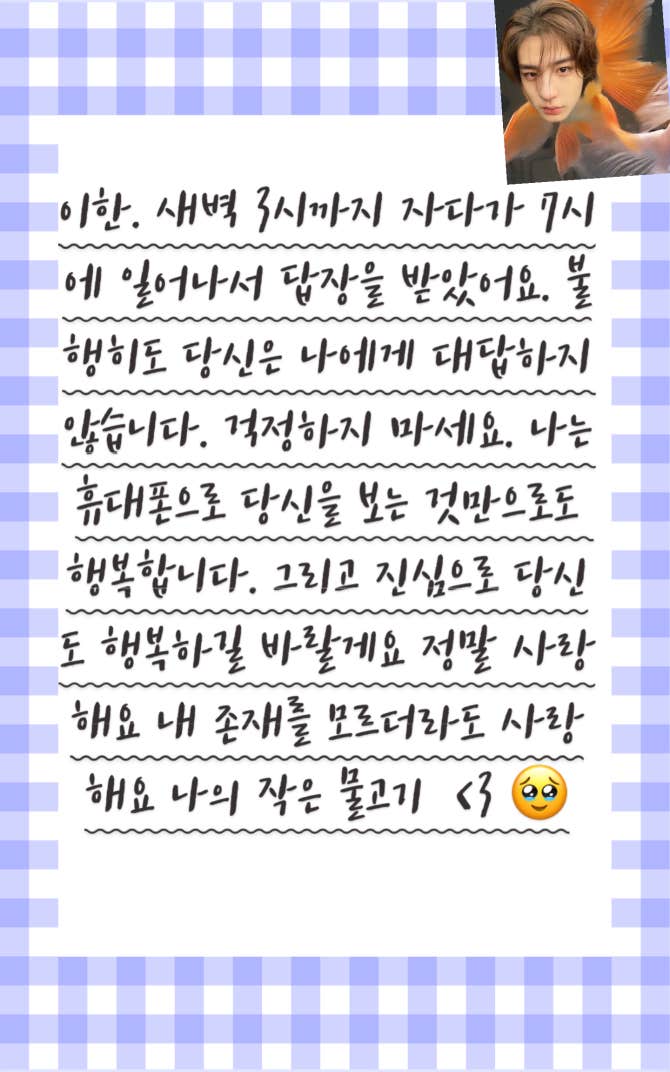 이한. 새벽 3시까지 자다가 7시
에 일어나서 답장을 받았어요. 불
행히도 당신은 나에게 대답하지
않습니다. 걱정하지 마세요. 나는
휴대폰으로 당신을 보는 것만으로도
행복합니다. 그리고 진심으로 당신
도 행복하길 바랄게요 정말 사랑
해요 내 존재를 모르더라도 사랑
해요 나의 작은 물고기 <3 🥹